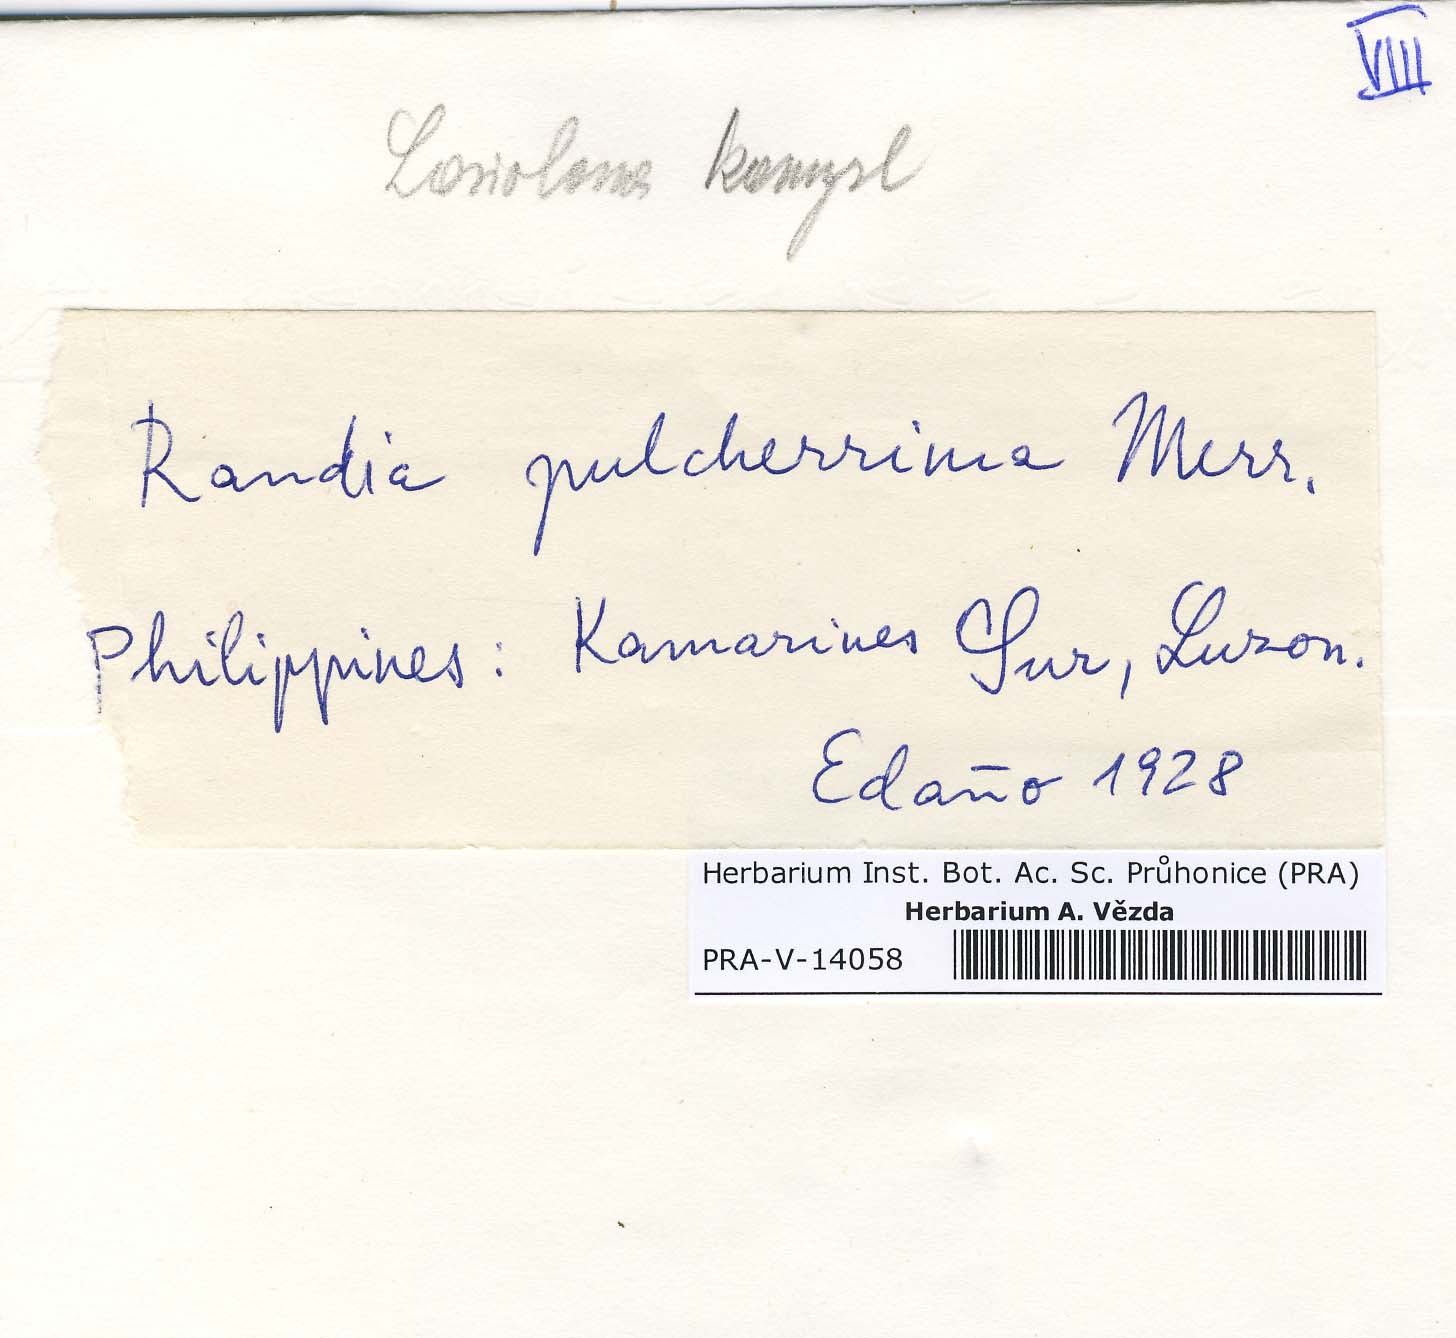 VIII
Randia pulcherrima Merr.
Philippines: Kamarines Sur, Luzon.
Edaño 1928
Herbarium Inst. Bot. Ac. Sc. Průhonice (PRA)
Herbarium A. Vězda
PRA-V-14058